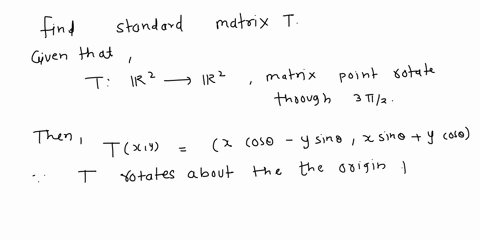 find standard matrix T.
Given that,
T: ℝ² ⟶ ℝ², matrix point rotate
through 3π/2.
Then, T(x,y) = (x cosθ - y sinθ, x sinθ + y cosθ)
∵ T rotates about the the origin